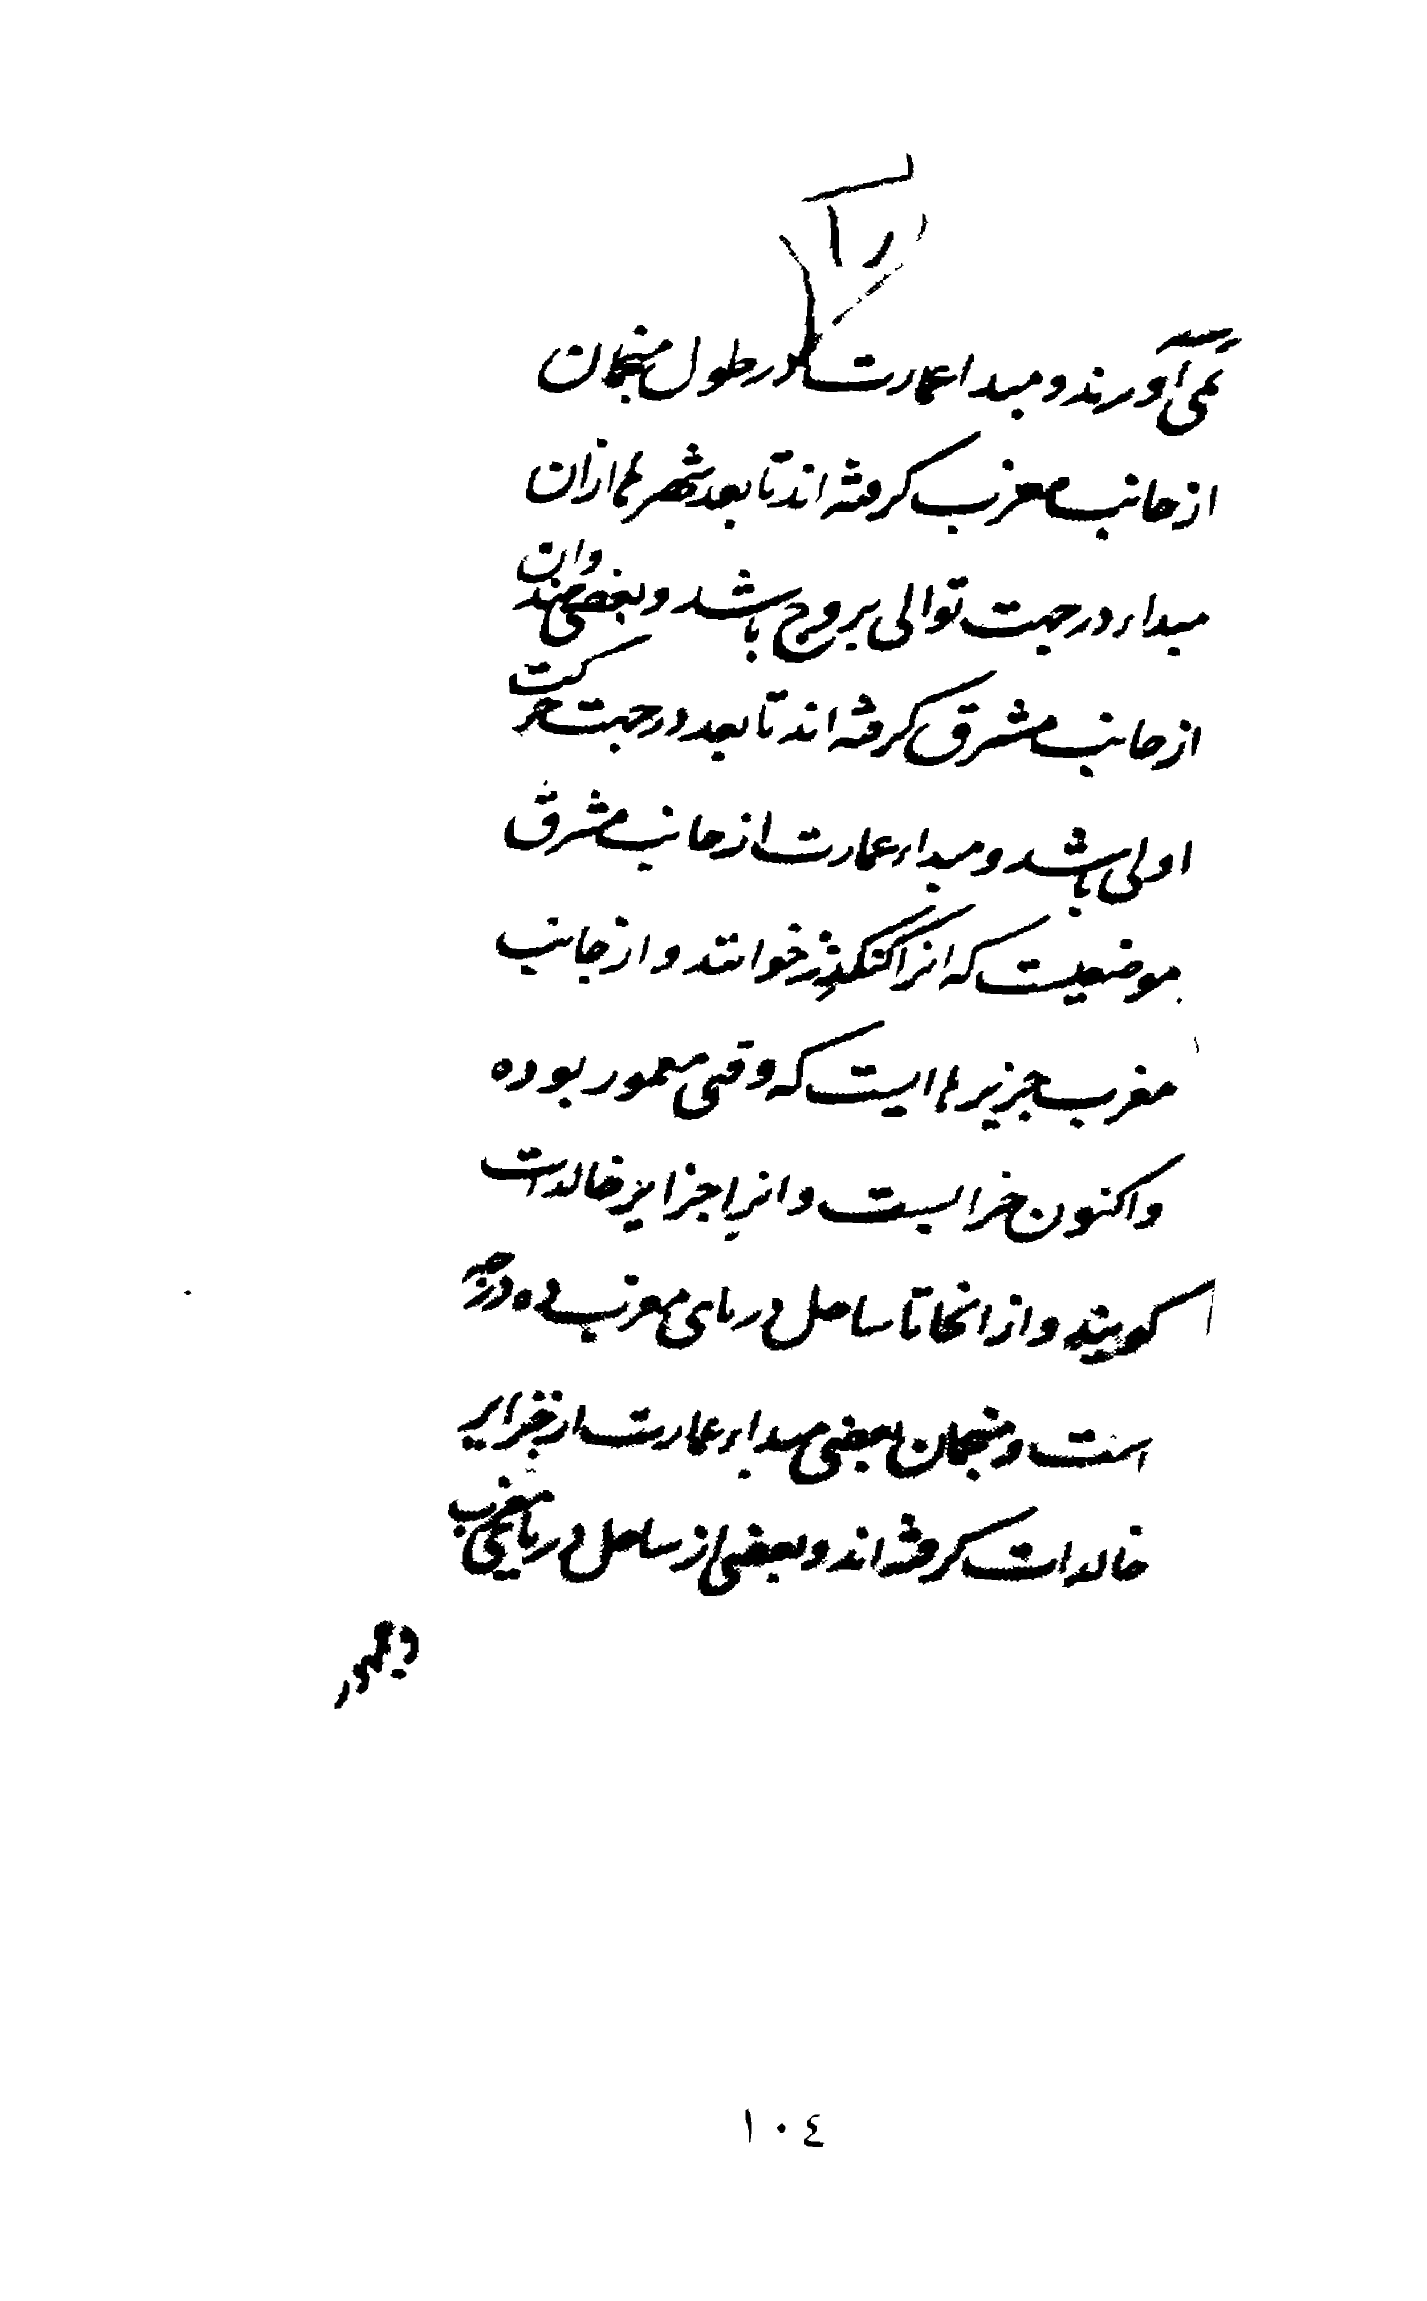 را
نمی آورند و مبدا عمارت در طول منجمان
از جانب مغرب گرفته اند تا بعد شهرها ازان
مبداء در جهت توالی بروج باشد و بعضی هندوان
از جانب مشرق گرفته اند تا بعد در جهت حرکت
اولی باشد و مبداء عمارت از جانب مشرق
موضعیست که انرا کنکدز خوانند و از جانب
مغرب جزیرها ایست که وقتی معمور بوده
و اکنون خرابست و انرا جزایر خالدات
کویند و از انجا تا ساحل دریای مغرب ده درجه
است و منجمان بعضی مبداء عمارت از جزایر
خالدات گرفته اند و بعضی از ساحل دریای مغرب
١٠٤